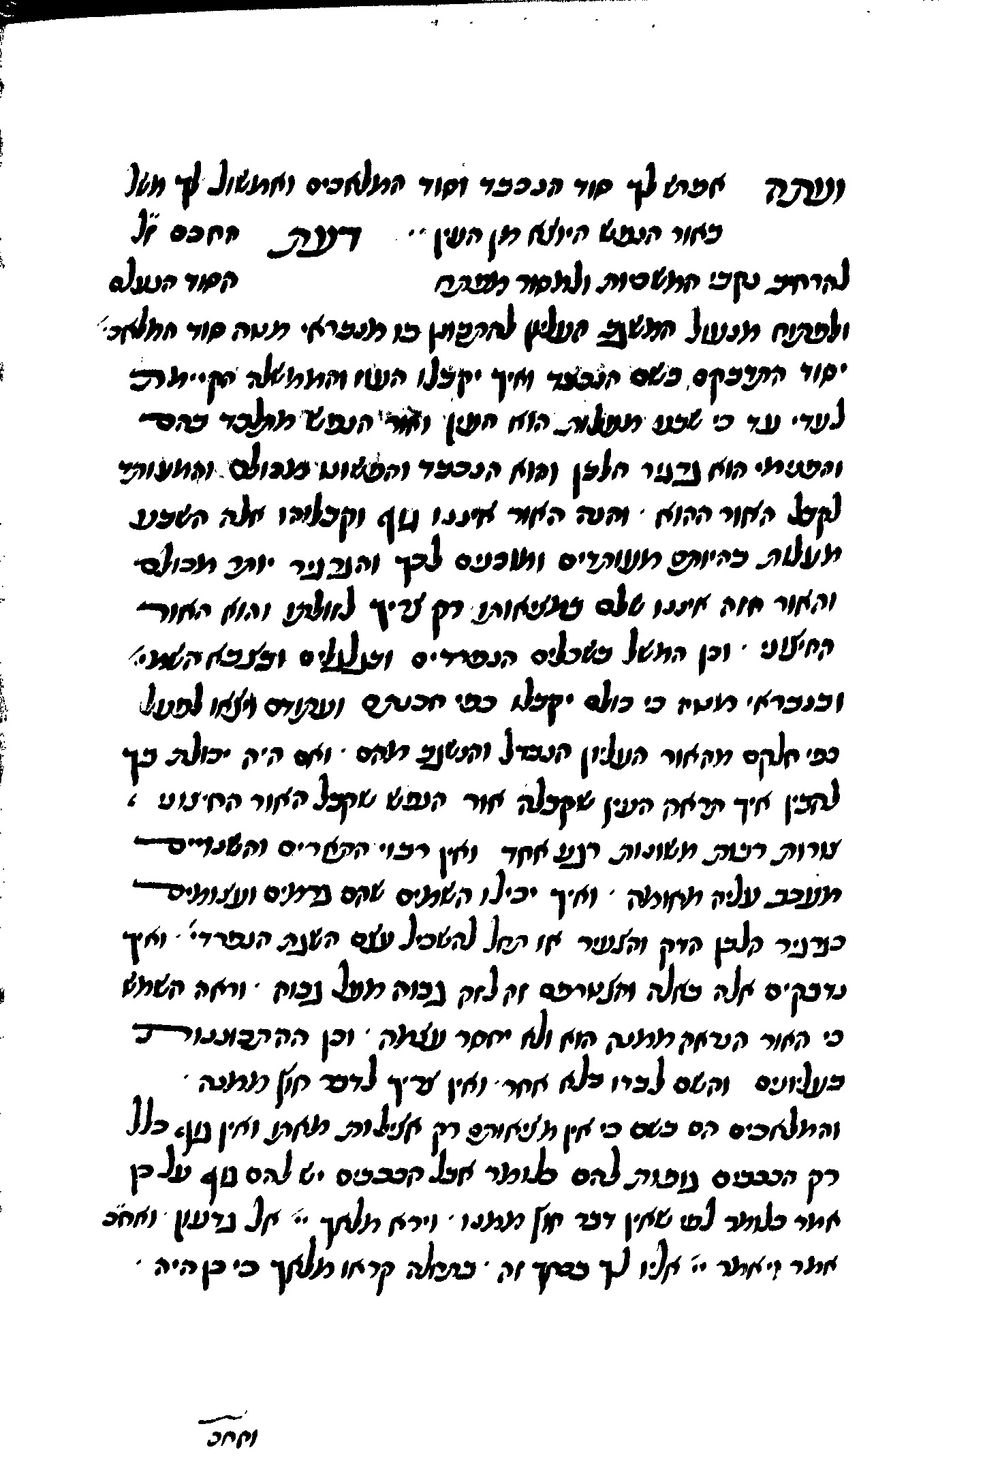 ועתה אפרש לך סוד הנכבד וסוד המלאכים ואמשול לך משל
מאור הנפש היוצא מן העין ·· דעת החכם ז״ל
להרחיב נקבי המשכיות ולמסור מפתח הסוד הנעלם
ולפתוח מנעול המשגב העליון להתבונן בו מנבראי מטה סוד המלאכי׳
יסוד התדבקם בשם הנכבד ואיך יקבלו העוז והממשלה הקיימת
לעדי עד כי שבע מעלות הוא העין ואור הנפש מתלכד בהם
והפנימי הוא גרגיר הלבן והוא הנכבד והפשוט מכולם והמעותד
לקבל האור ההוא · והנה האור איננו גוף וקבלוהו אלה השבע
מעלות בהיותם מעותדים ומוכנים לכך והגרגיר יותר מכולם
והאור הזה איננו שלם במציאותו רק צריך לזולתו והוא האור
החיצוני · וכן המשל בשכלים הנפרדים ובגלגלים ובצבא השמי׳
ובנבראי מטה כי כולם יקבלו כפי הכנתם ועתודם ויצאו לפעל
כפי חלקם מהאור העליון הנבדל והנשגב מהם · ואם היה יכולת בך
להבין איך תראה העין שקבלה אור הנפש שקבל האור החיצוני
צורות רבות משונות רגע אחד ואין רבוי התארים והשנויים
מעכב עליה מאומה · ואיך יכילו השמים שהם גרמים ועצומים
כגרגיר הלבן הדק והצעיר או תוכל להשכיל עצם השגת הנפרדי׳ · ואיך
נדבקים אלה באלה והצטרפם זה לזה גבוה מעל גבוה · וראה השמש
כי האור הנראה ממנה הוא ולא יחסר עצמה · וכן ההתבוננות
בעליונים והשם לבדו בלא אחר · ואין צריך לדבר חוץ ממנה ·
והמלאכים הם בשם כי אין מציאותם רק אצילות מאתו ואין גוף כלל
רק הכבבים גופות להם כלומר אבל הכבבים יש להם גוף על כן
אמר כלומר לפי שאין דבר חוץ ממנו · וירא מלאך יי׳ אל גדעון · ואח״כ
אמר ויאמר יי׳ אליו לך בכחך זה · בתחלה קראו מלאך כי כן היה ·
ואחכ